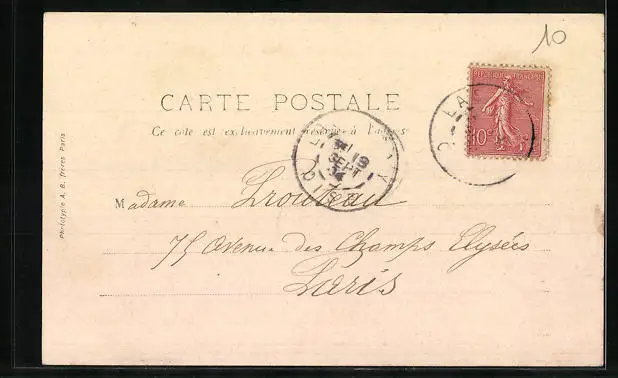 10
REPUBLIQUE FRANÇAISE
10
CARTE POSTALE
Ce côté est exclusivement réservé à l'adresse
18
SEPT
Madame Trouteau
75 Avenue des Champs Elysées
Paris
Phototypie A. B. frères Paris